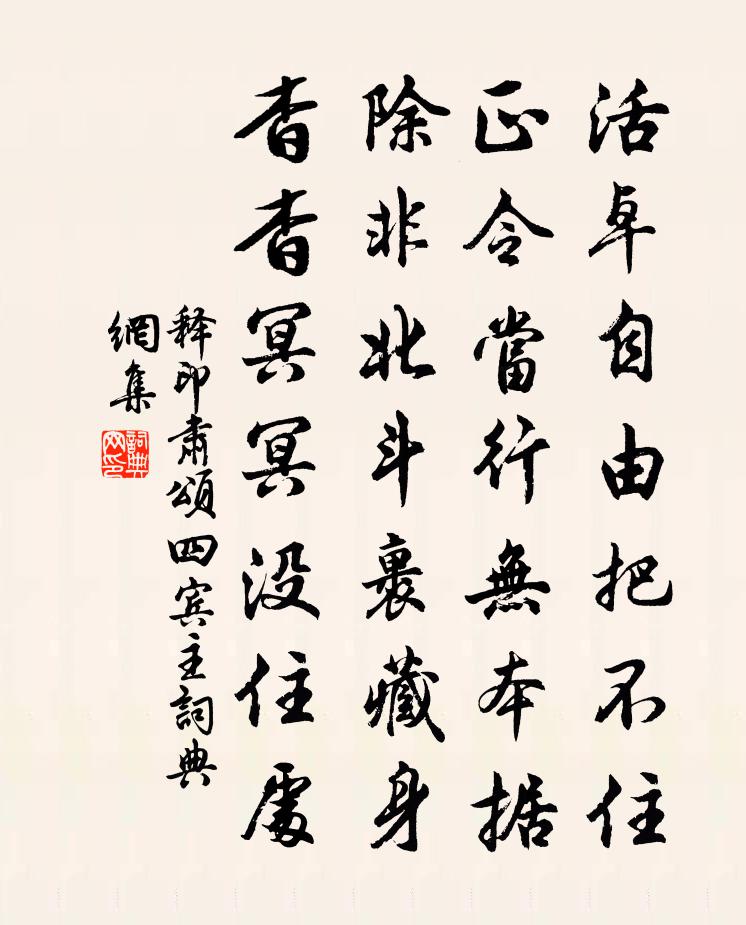 活卓自由把不住
正令當行無本据
除非北斗裹藏身
杳杳冥冥没住處
释印肃頌四宾主詞典
網集
詞典网印